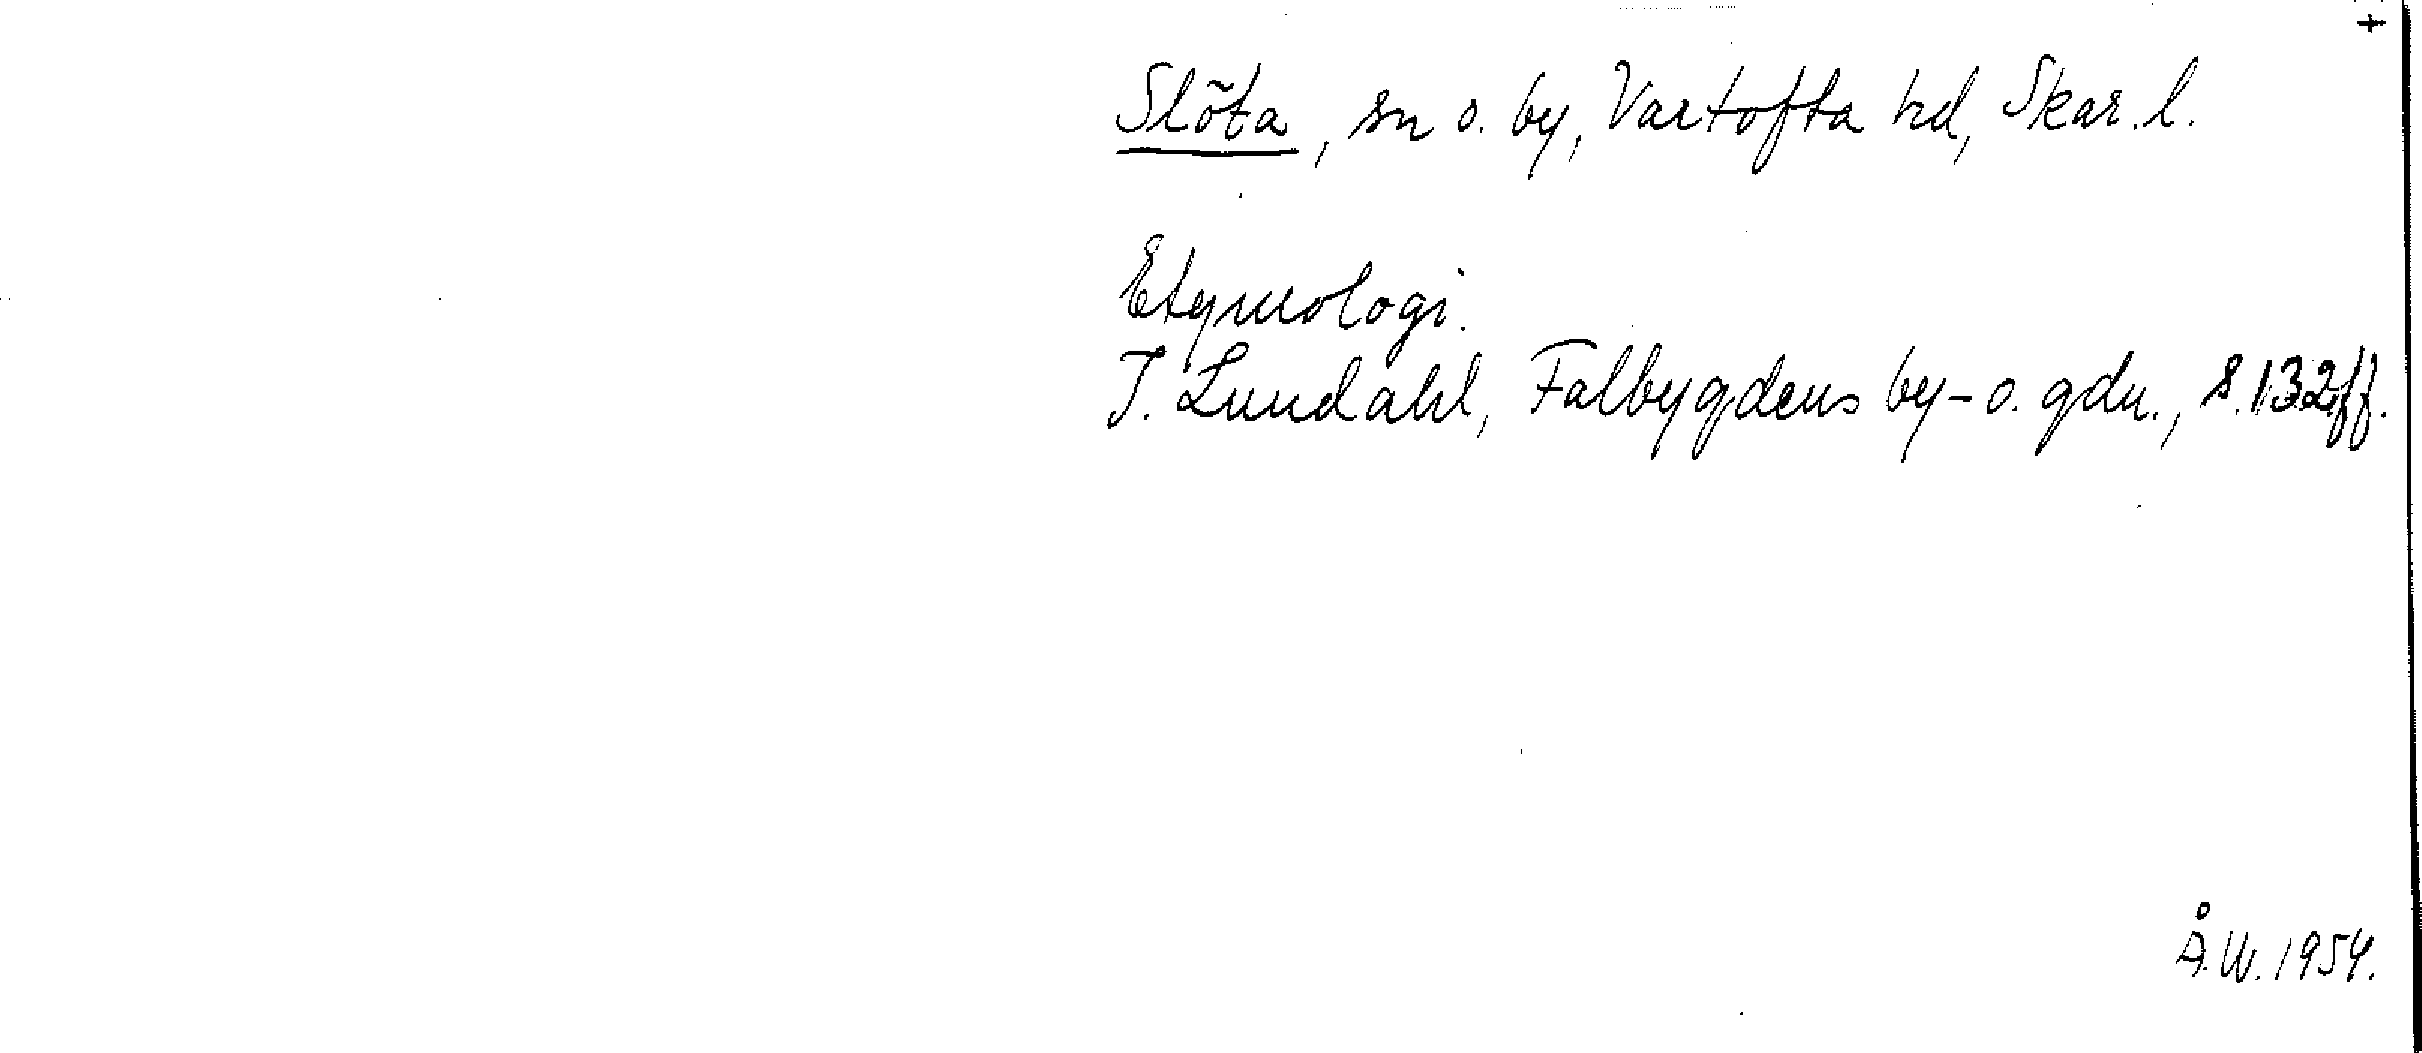 +
Slöta, sn o. by, Vartofta hd, Skar. l.
Etymologi.
I. Lundahl, Falbygdens by- o. gdn., s. 132ff.
Å.W. 1954.